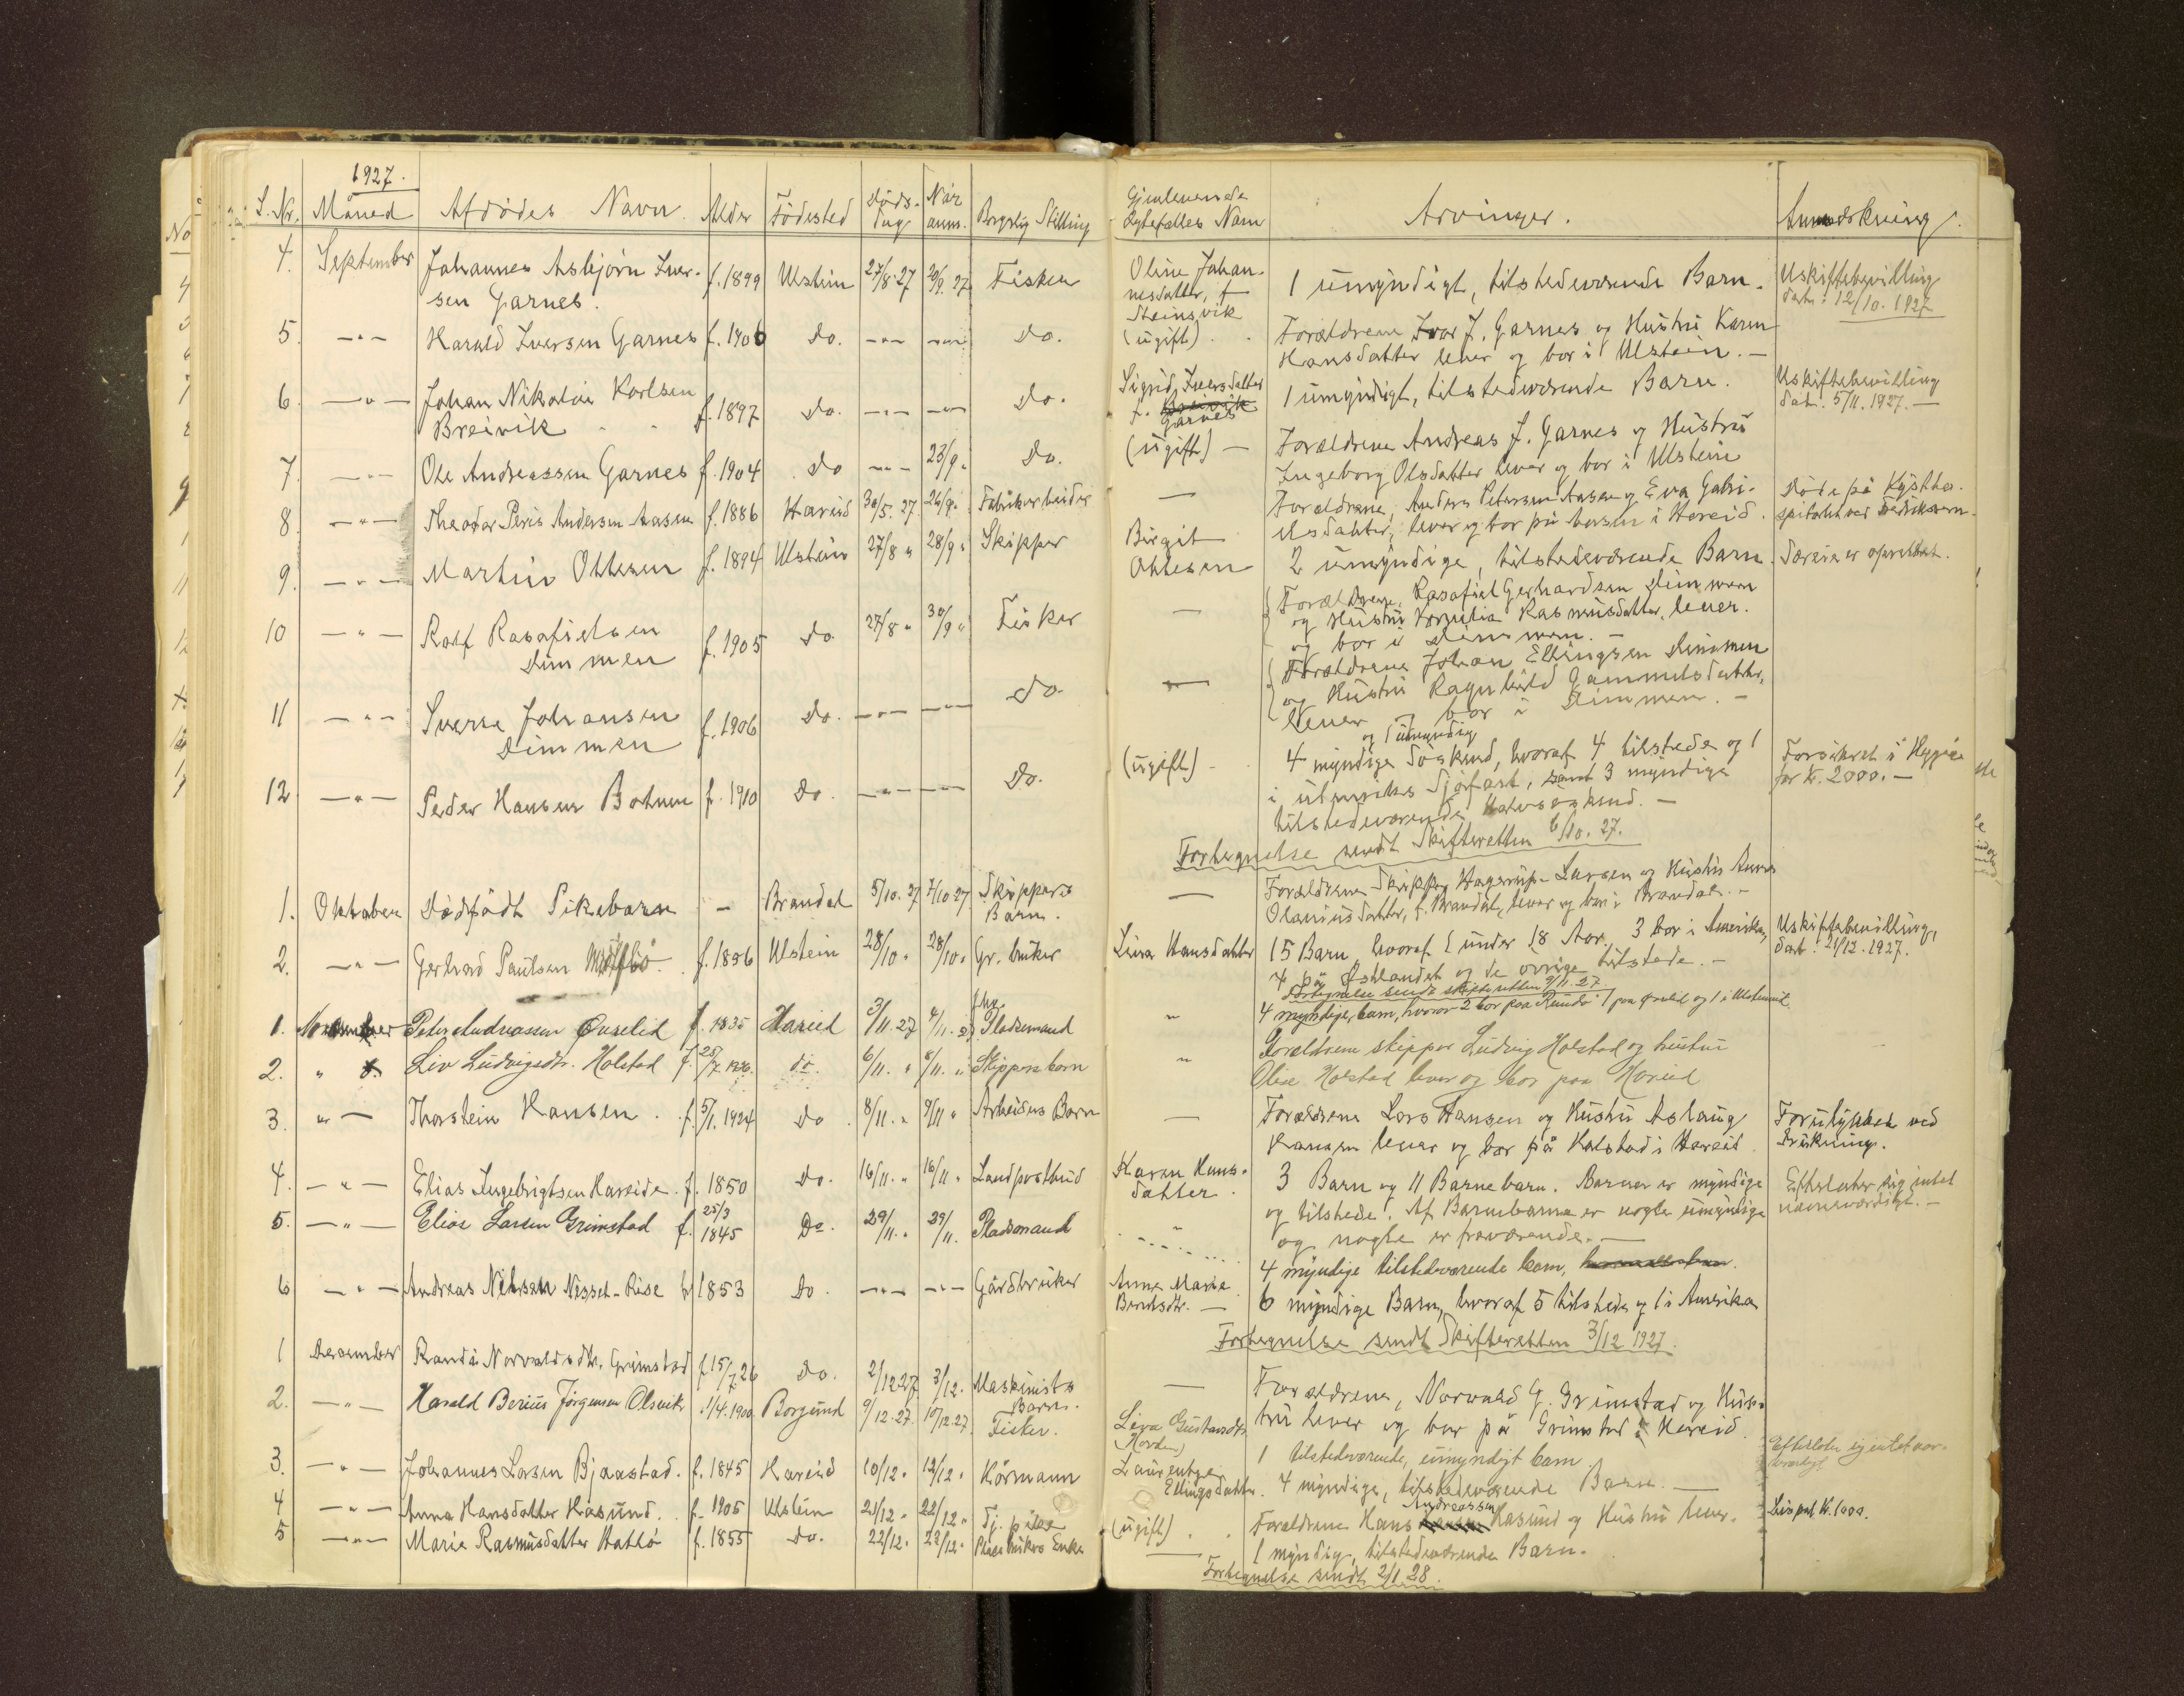 1927.
L. Nr. Måned Afdødes Navn. Alder Fødested Døds- dag Når anm. Borgerlig Stilling Gjenlevende Ægtefælles Navn Arvinger. Anmerkning.
4. September Johannes Asbjørn Iver- f. 1899 Ulstein 27/8 27 20/9. 27 Fisker Oline Johan- 1 umyndigt, tilstedeværende Barn. Uskiftebevilling
sen Garnes. nesdatter, f. dat. 12/10. 1927
Steinsvik
5. —"— Harald Iversen Garnes f. 1906 do. —"— —"— do. (ugift) Forældrene Ivar J. Garnes og Hustru Karen
Hansdatter lever og bor i Ulstein. —
6. —"— Johan Nikolai Karlsen f. 1897 do. —"— —"— do. Sigrid Iversdatter 1 umyndigt, tilstedeværende Barn. Uskiftebevilling
Breivik f. Breivik dat. 5/11. 1927. —
Garnes
7. —"— Ole Andreassen Garnes f. 1904 do —"— 23/9. do. (ugift) — Forældrene Andreas J. Garnes og Hustru
Ingeborg Olsdatter lever og bor i Ulstein
8. —"— Theodor Peris Andersen Aasen f. 1886 Hareid 30/5. 27. 26/9. Fabrikarbeider — Forældrene, Anders Petersen Aasen og Eva Gabri- Døde på Kysthos-
elsdatter, lever og bor på Aasen i Hareid. spitalet ved Fredriksvern
9. —"— Martin Ottesen f. 1894 Ulstein 27/8 " 28/9 " Skipper Birgit 2 umyndige, tilstedeværende Barn.
Ottesen
10 —"— Rolf Rasafielsen f. 1905 do 27/8 " 30/9 " Fisker — Forældrene, Rasafiel Gerhardsen Dimmen
Dimmen og Hustru Kornelia Rasmusdatter, lever
og bor i Dimmen. —
11 —"— Sverre Johansen f. 1906 do. —"— —"— do. — Forældrene Johan Ellingsen Dimmen
Dimmen og Hustru Ragnhild Gammelsdatter,
lever og bor i Dimmen. —
og 1 umyndig
12 —"— Peder Hansen Botnen f. 1910 do. —"— —"— do. (ugift) 4 myndige Søskend, hvoraf 4 tilstede og 1 Forsikret i Hygiea
i utenriks Sjøfart, samt 3 myndige for Kr. 2000. —
tilstedeværende Halvsøskend. —
Fortegnelse sendt Skifteretten 6/10. 27.
1. Oktober Dødfødt Pikebarn — Brandal 5/10. 27 7/10 27 Skippers — Forældrene Skipper Hagerup Larsen og Hustru Anna
Barn. Olaniusdatter, f. Brandal, lever og bor i Brandal. —
2. —"— Gerhard Paulsen f. 1856 Ulstein 28/10 " 28/10 " Gr. bruker Lina Hansdatter 15 Barn, hvoraf 1 under 18 Aar. 3 bor i Amerika, Uskiftebevilling,
4 på Østlandet og de øvrige tilstede. — dat. 21/12. 1927.
Fortegnelse sendt skifteretten 9/11. 27
1. November Peter Andreassen Overlid f. 1835 Hareid 3/11. 27 4/11. 27 fhv. Pladsmand " 4 myndige barn, hvorav 2 bor paa Rundø 1 paa Overlid og 1 i Ulstein
2. " Liv Ludvigsdtr. Holstad f. 25/7 1926. do. 6/11. " 8/11. " Skippers barn " Forældrene skipper Ludvig Holstad og hustru
Oline Holstad lever og bor paa Hareid
3. " — Thorstein Hansen. f. 5/1. 1924 do 8/11. " 9/11 " Arbeiders Barn — Forældrene Lars Hansen og Hustru Aslaug Forulykket ved
Hansen lever og bor på Holstad i Hareid. drukning.
4. —"— Elias Ingebrigtsen Hareide. f. 1850 do. 16/11. " 16/11 " Landpostbud Karen Hans- 3 Barn og 11 Barnebarn. Barnen er myndige Efterlater sig intet
datter. og tilstede. Af Barnebarna er nogle umyndige nævneværdigt. —
og nogle er fraværende. —
5. —"— Elias Larsen Grimstad f. 25/3 1845 do. 29/11. " 29/11. Pladsmand " 4 myndige tilstedeværende barn,
6 —"— Andreas Nilssen Nesset-Rise f. 1853 do. —"— —"— Gårdbruker Anne Marie 6 myndige Barn, hvoraf 5 tilstede og 1 i Amerika
Berntsdtr. —
Fortegnelse sendt Skifteretten 3/12 1927.
1 December Randi Norvaldsdtr. Grimstad f. 15/7. 26 do. 2/12 27 3/12. Maskinists — Forældrene, Norvald G. Grimstad og Hus-
Barn. tru lever og bor på Grimstad i Hareid.
2. —"— Harald Berius Jørgensen Olsvik 1/4. 1900 Borgund 9/12. 27. 10/12. 27 Fisker. Liva Gustavsdtr. 1 tilstedeværende, umyndigt barn.
3. —"— Johannes Larsen Bjaastad. f. 1845 Hareid 10/12 " 12/12 " Kårmann Laurentze 4 myndige, tilstedeværende Barn. —
Ellingsdatter.
4 —"— Anna Hansdatter Hasund. f. 1905 Ulstein 21/12 " 22/12 " Tj. pike (ugift) Forældrene Hans Andreassen Hasund og Hustru lever. Livspol. Kr. 1000.
5 —"— Marie Rasmusdatter Hatlø f. 1855 do. 22/12. 23/12. Enke — 1 myndig, tilstedeværende Barn.
Fortegnelse sendt 2/1 28.